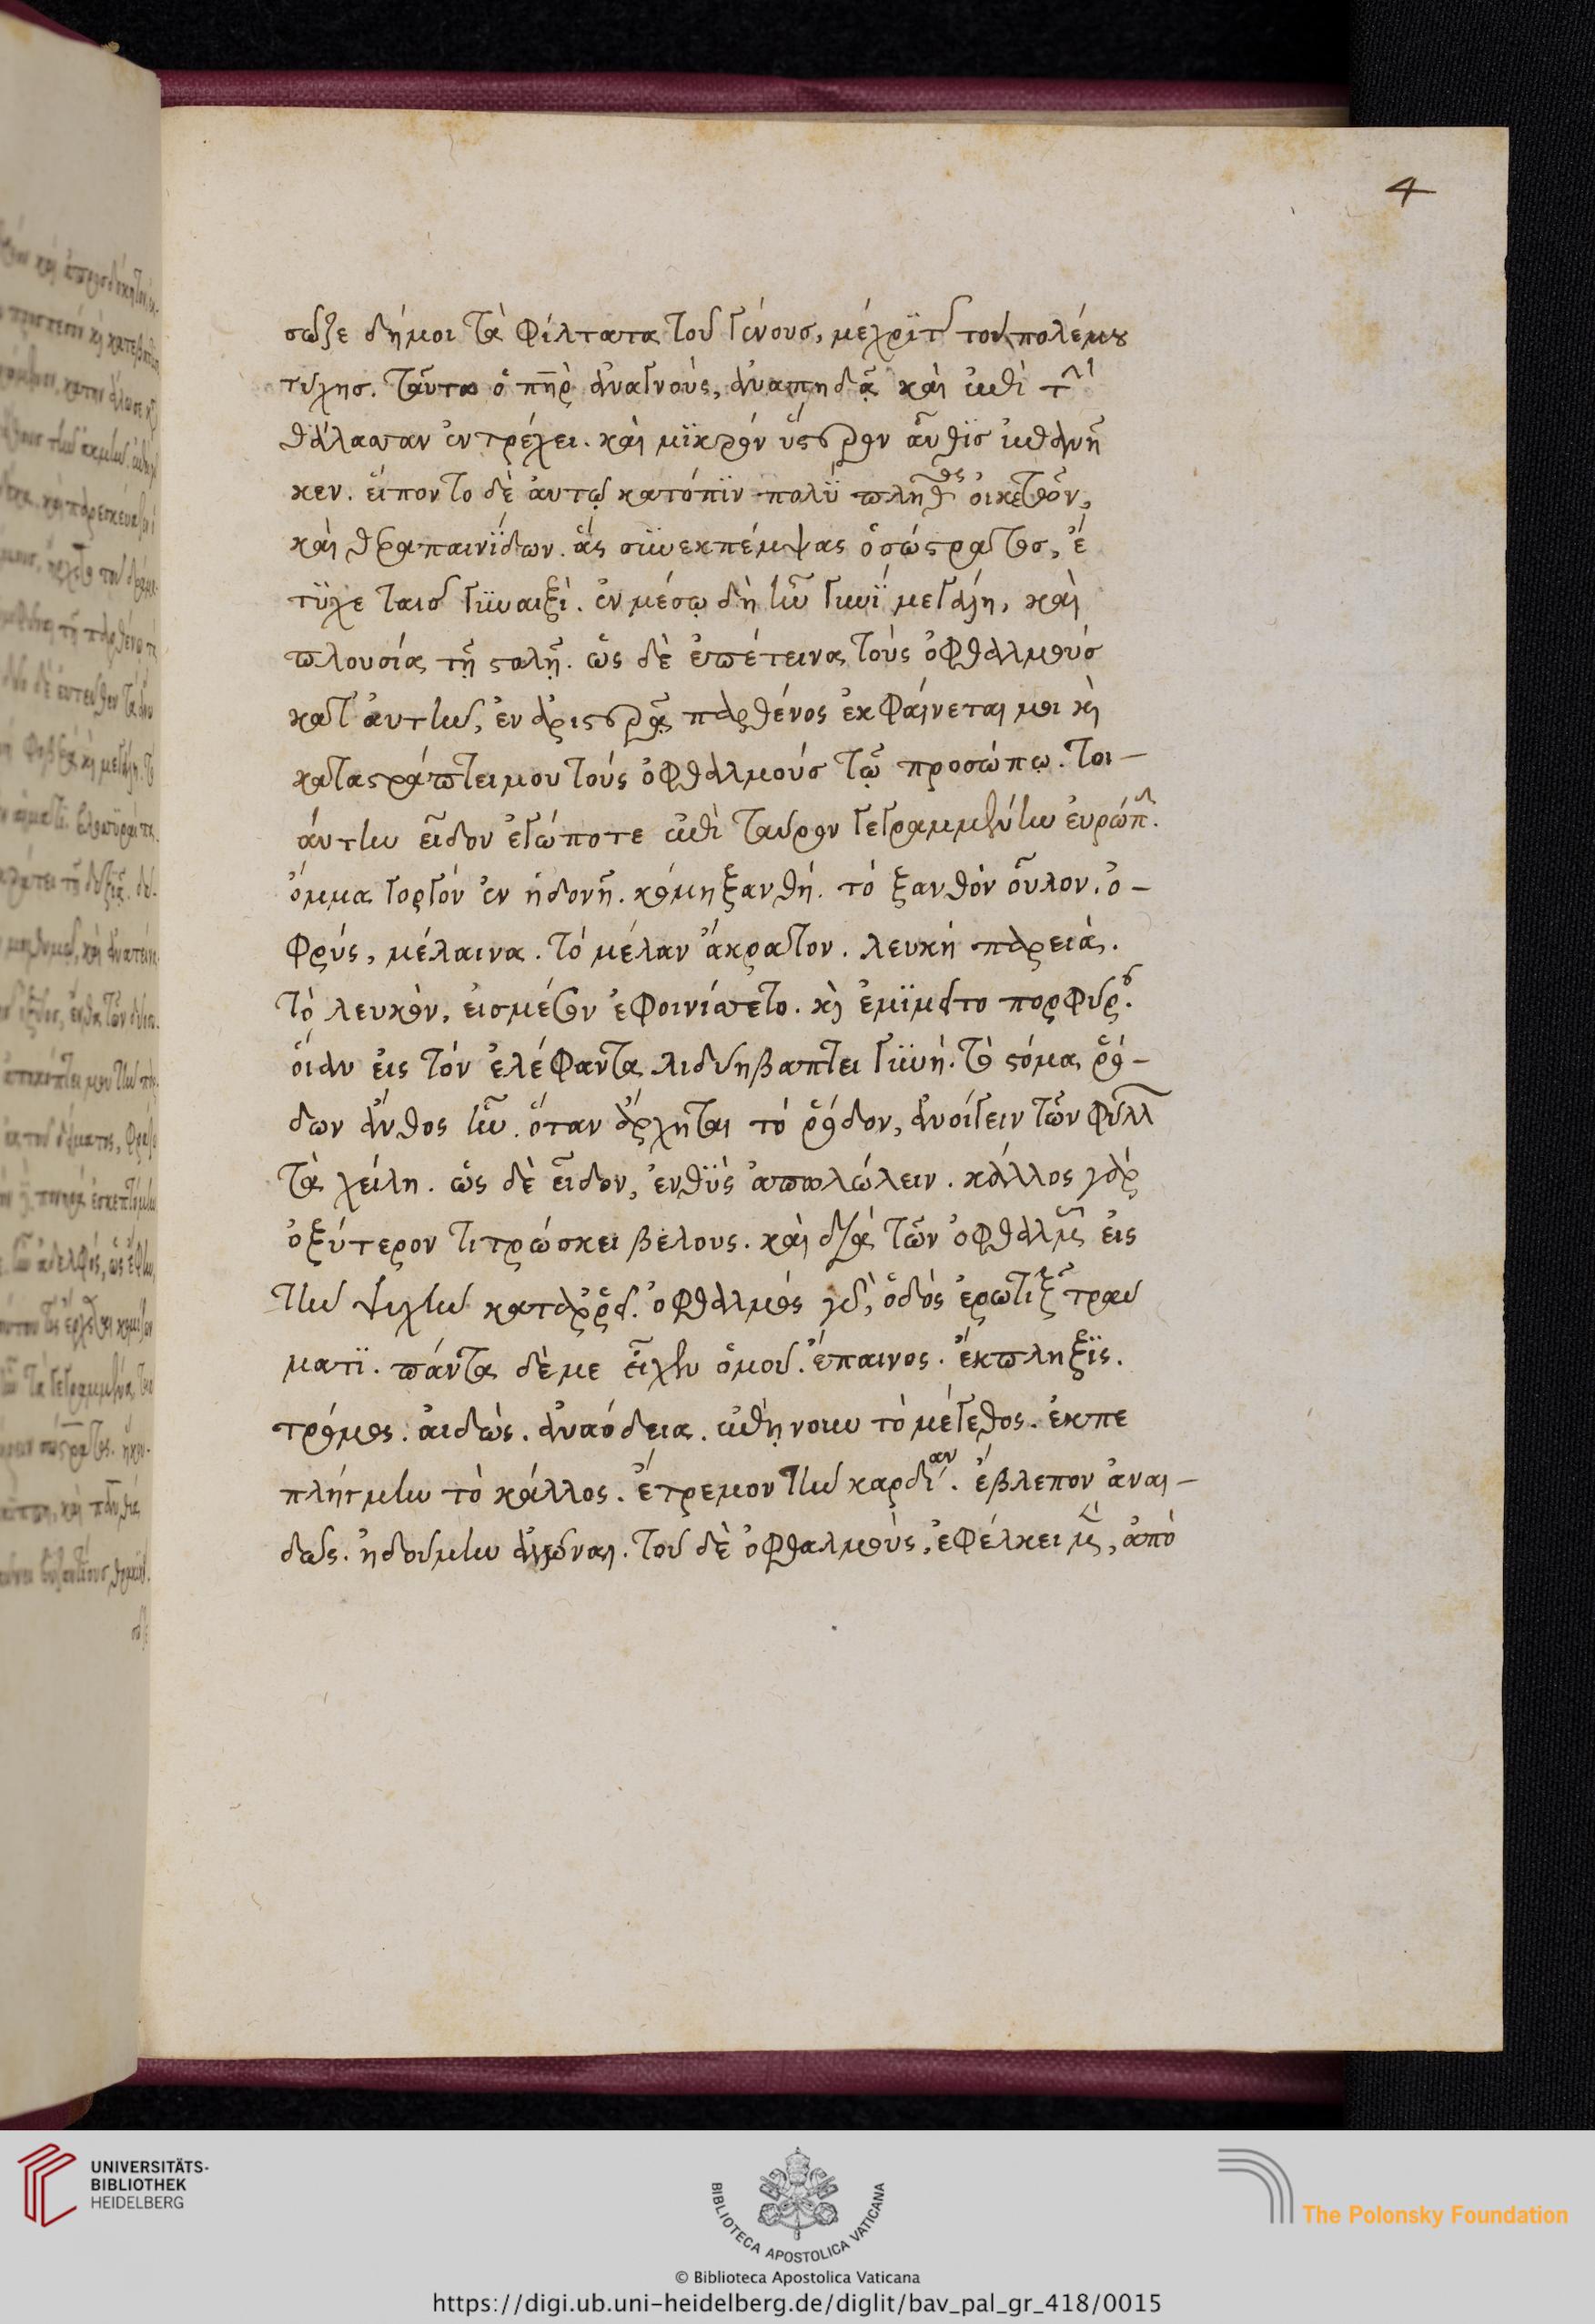 4
σῶζε δή μοι τὰ φίλτατα τοῦ γένους, μέχρι τ̃ τοῦ πολέμου
τύχησ. ταῦτα ὁ πη̅ρ ἀναγνοὺς, ἀναπηδᾷ καὶ ἐπὶ τὴν
θάλασσαν ἐντρέχει. καὶ μϊκρὸν ὕστερον αὖθϊσ ἐπανῆ
κεν. εἵποντο δὲ ἀυτῷ κατόπϊν πολϋ πλῆθος οἰκετῶν,
καὶ θεραπαινίδων. ἃς συνεκπέμψας ὁ σώστρατοσ, ἔ
τϋχε ταισ γϋναιξὶ. ἐν μέσῳ δὴ ἦν γυνὴ μεγάλη, καὶ
πλουσία τῇ στολῇ. ὡς δὲ ἐπέτεινα τοὺς ὀφθαλμούσ
κατ ἀυτὴν, ἐν ἀριστερᾷ παρθένος ἐκφαίνεται μοι κὴ
καταστράπτει μου τοὺς ὀφθαλμούσ τῷ προσώπῳ. τοι-
άυτην εἶδον ἐγώ ποτε ἐπὶ ταύρον γεγραμμένην ἐυρώπην.
ὄμμα γοργόν ἐν ἡδονῇ. κόμη ξανθή. τὸ ξανθὸν οὖλον. ὀ-
φρύς, μέλαινα. τό μέλαν ἄκρατον. λευκή παρειά.
τὸ λευκὸν, εισμέσον ἐφοινίσσετο. κὴ ἐμϊμεῖτο πορφύραν.
οἵαν εἰς τόν ἐλέφαντα λιδύη βάπτει γϋνή. τὸ στόμα ῥό-
δων ἄνθος ἦν. ὅταν ἄρχηται τό ῥόδον, ἀνοίγειν τῶν φύλλ
τὰ χείλη. ὡς δὲ εἶδον, ἐυθϋς ἀπολώλειν. κάλλος γὰρ
ὀξύτερον τιτρώσκει βέλους. καὶ διὰ τῶν ὀφθαλμῶν εἰς
τὴν ψυχὴν καταρρεῖ. ὀφθαλμός γὰρ, ὁδὸς ἐρωτικῷ τραύ
ματϊ. πάντα δέ με εἶχεν ὁμοῦ. ἔπαινος. ἔκπληξϊς.
τρόμος. ἀιδὼς. ἀναίδεια. ἐπῄνουν τὸ μέγεθος. ἐκπε
πλήγμην τὸ κάλλος. ἔτρεμον τὴν καρδίαν. ἔβλεπον ἀναι-
δῶς. ἠδούμην ἁλῶναι. τοῦ δὲ ὀφθαλμοὺς, ἐφέλκει μὲν, ἀπὸ
UNIVERSITÄTS-
BIBLIOTHEK
HEIDELBERG
BIBLIOTECA APOSTOLICA VATICANA
© Biblioteca Apostolica Vaticana
The Polonsky Foundation
https://digi.ub.uni-heidelberg.de/diglit/bav_pal_gr_418/0015